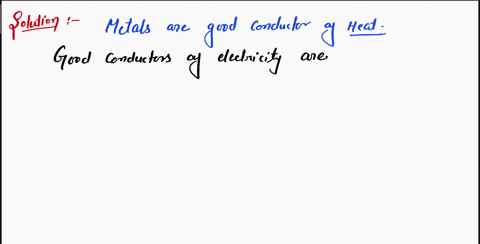 Solution :- Metals are good conductor of Heat.
Good conductors of electricity are